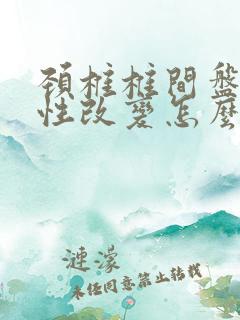 頚椎椎間盤
性改變怎麼
漣濛
未经同意禁止转载